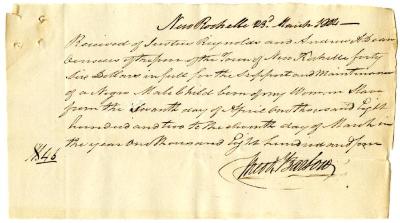 New Rochelle 23d. March 1804
Received of Justus Reynolds and Andrew A Dean
overseers of the poor of the Town of New Rochelle forty
Six Dollars in full for the Support and Maintenance
of a Negro Male Child born of my Woman Slave
from the Seventh day of April One thousand Eight
hundred and two to the eleventh day of March in
the year One thousand Eight hundred and four
$46